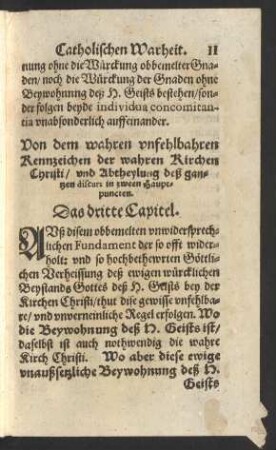 Catholischen Warheit. 11
nung ohne die Würckung obbemelter Gna-
den/ noch die Würckung der Gnaden ohne
Beywohnung deß H. Geists bestehen/ son-
der folgen beyde individua concomitan-
tia vnabsonderlich auffeinander.
Von dem wahren vnfehlbahren
Kennzeichen der wahren Kirchen
Christi/ vnd Abtheylung deß gan-
tzen discurs in zween Haupt-
puncten.
Das dritte Capitel.
AVß disem obbemelten vnwidersprech-
lichen Fundament der so offt wider-
holt: vnd so hochbethewrten Göttli-
chen Verheissung deß ewigen würcklichen
Beystands Gottes deß H. Geists bey der
Kirchen Christi/ thut dise gewisse vnfehlba-
re/ vnd vnverneinliche Regel erfolgen. Wo
die Beywohnung deß H. Geists ist/
daselbst ist auch nothwendig die wahre
Kirch Christi. Wo aber diese ewige
vnaußsetzliche Beywohnung deß H.
Geists